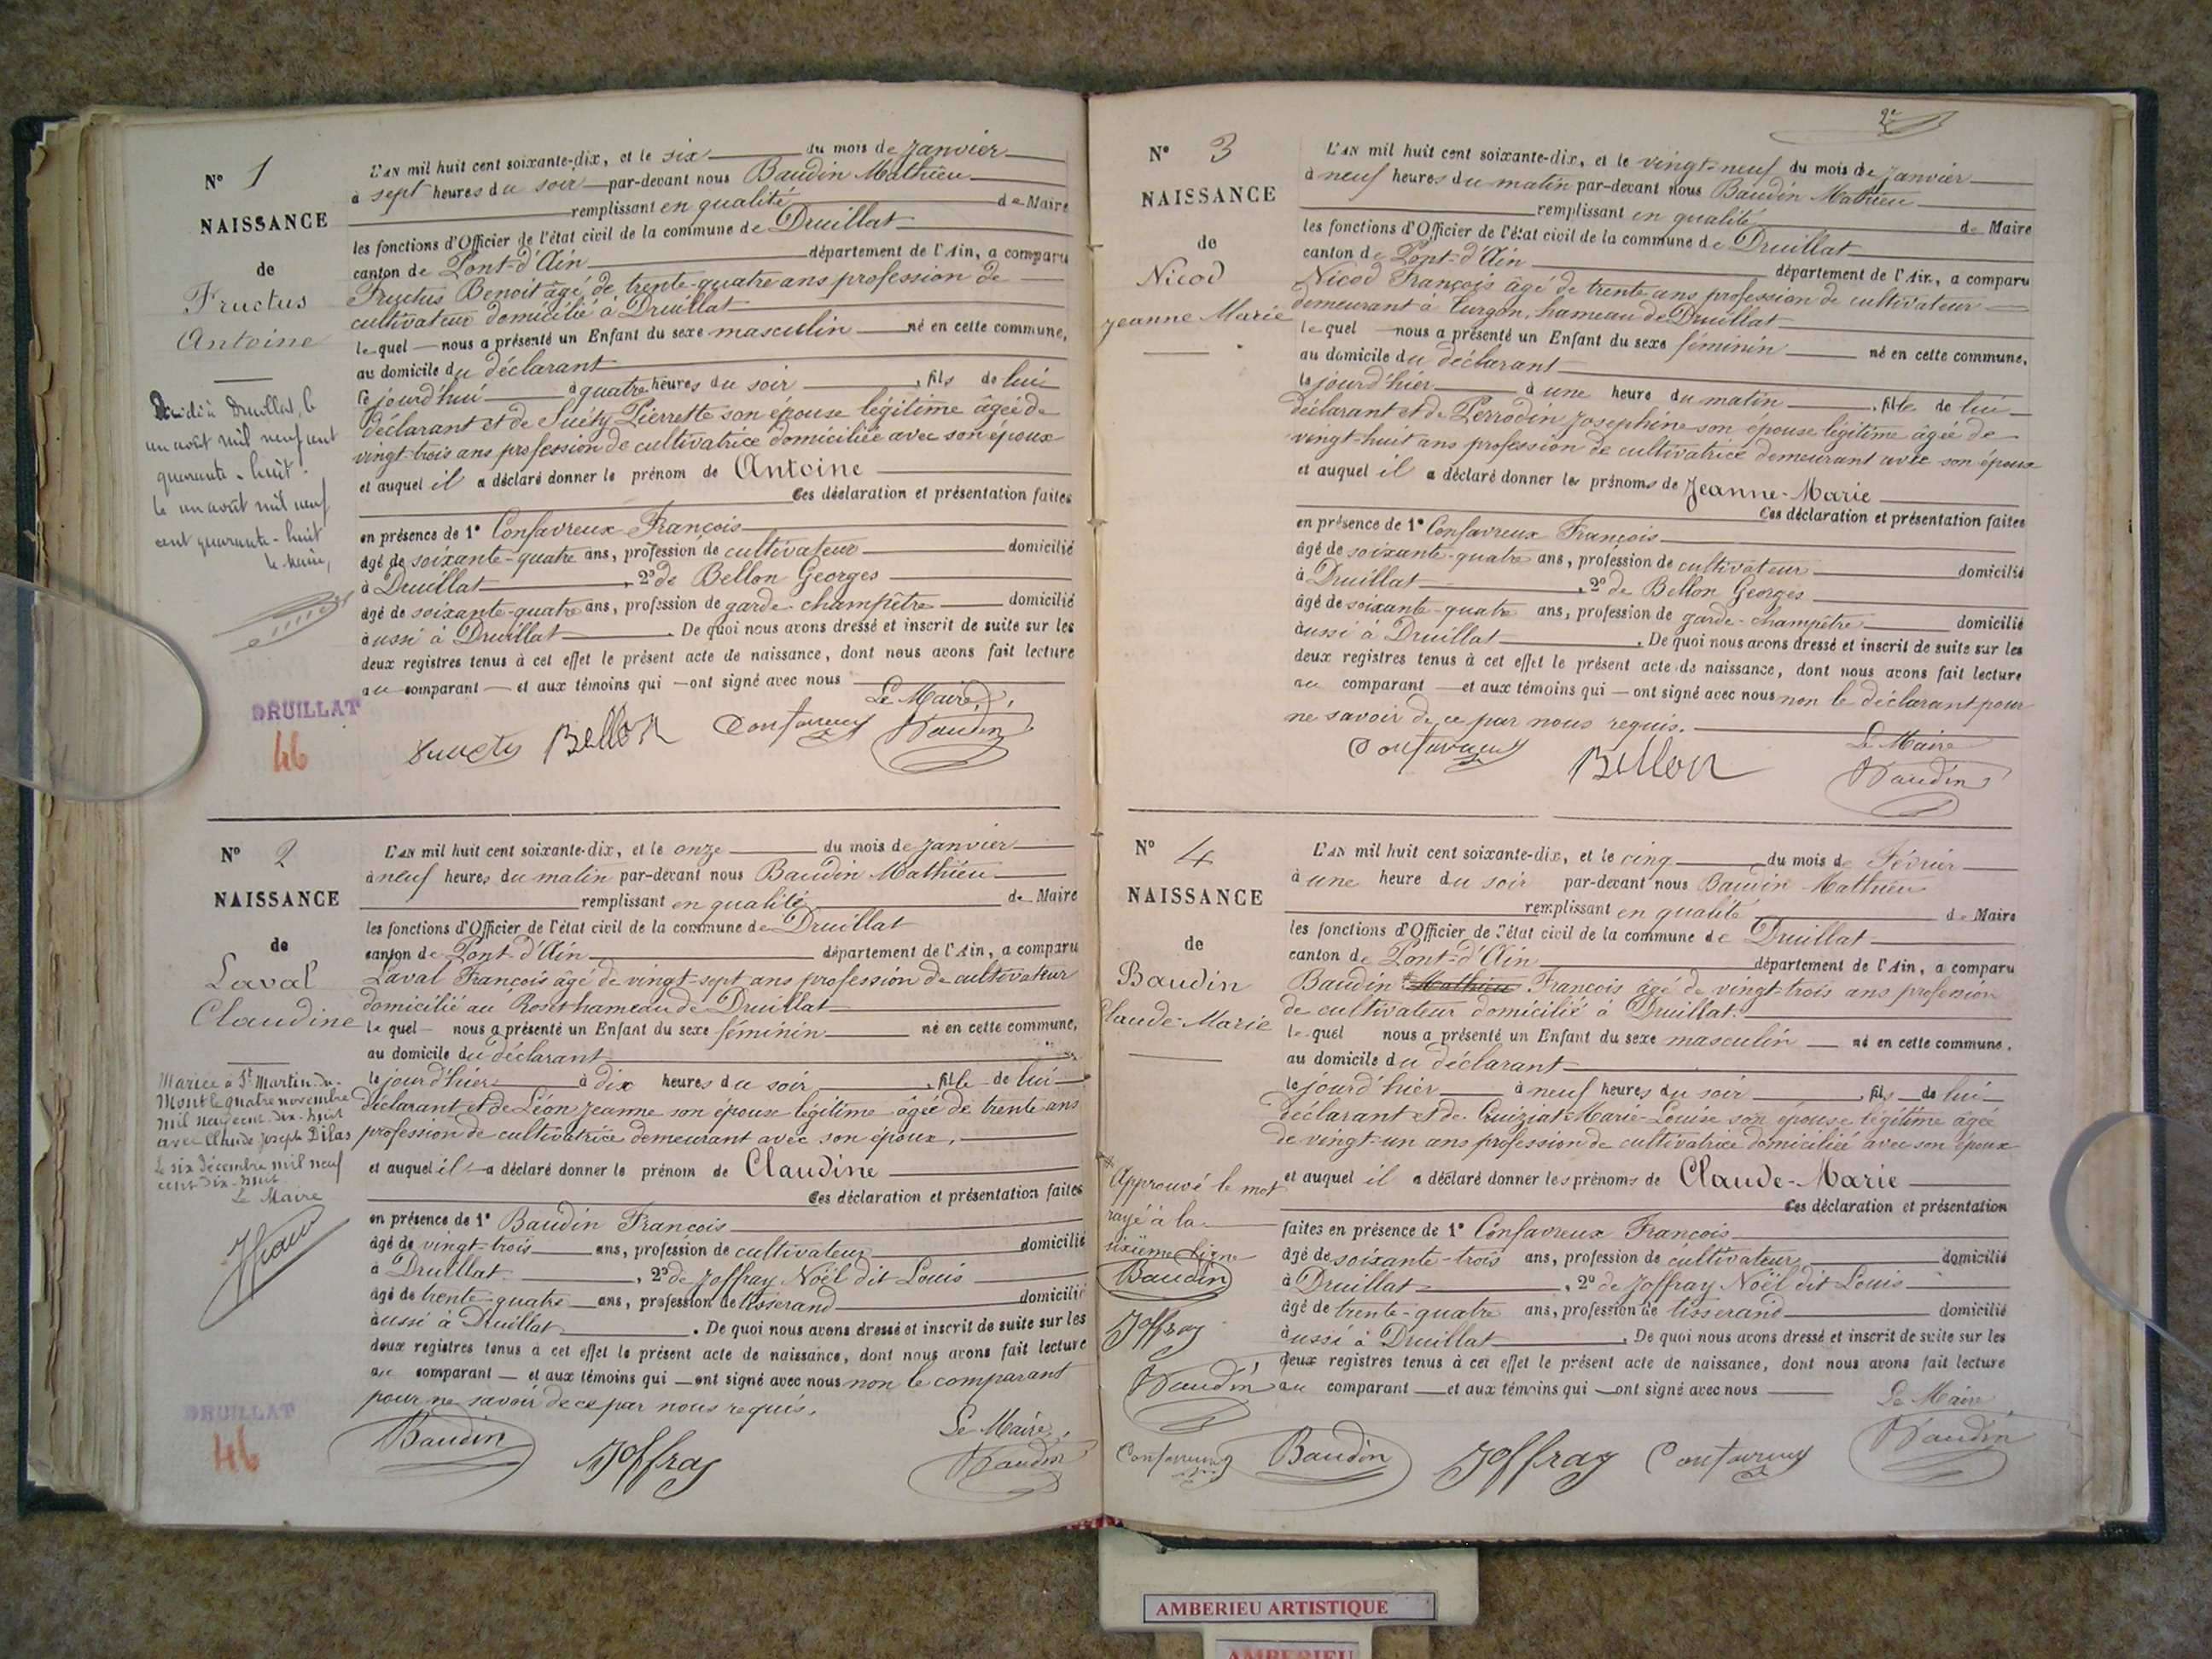 N° 1
NAISSANCE
de
Fructus
Antoine
Décédé à Druillat, le
un août mil neuf cent
quarante-huit.
le un août mil neuf
cent quarante-huit
le Maire,
DRUILLAT
46
L'AN mil huit cent soixante-dix, et le six du mois de Janvier
à sept heures du soir par-devant nous Baudin Mathieu
remplissant en qualité de Maire
les fonctions d'Officier de l'état civil de la commune de Druillat
canton de Pont-d'Ain département de l'Ain, a comparu
Fructus Benoit âgé de trente-quatre ans profession de
cultivateur domicilié à Druillat
lequel nous a présenté un Enfant du sexe masculin né en cette commune,
au domicile du déclarant
le jourd'hui à quatre heures du soir, fils de lui
déclarant et de Suéty Pierrette son épouse légitime âgée de
vingt-trois ans profession de cultivatrice domiciliée avec son époux
et auquel il a déclaré donner le prénom de Antoine
Ces déclaration et présentation faites
en présence de 1° Confavreux François
âgé de soixante-quatre ans, profession de cultivateur domicilié
à Druillat, 2° de Bellon Georges
âgé de soixante-quatre ans, profession de garde-champêtre domicilié
aussi à Druillat. De quoi nous avons dressé et inscrit de suite sur les
deux registres tenus à cet effet le présent acte de naissance, dont nous avons fait lecture
au comparant et aux témoins qui ont signé avec nous
Le Maire,
Fructus Bellon Confavreux Baudin
N° 2
NAISSANCE
de
Laval
Claudine
Mariée à St Martin-du-
Mont le quatre novembre
mil neuf cent dix-huit
avec Claude Joseph Dilas
Le six décembre mil neuf
cent dix-huit
Le Maire
DRUILLAT
46
L'AN mil huit cent soixante-dix, et le onze du mois de Janvier
à neuf heures du matin par-devant nous Baudin Mathieu
remplissant en qualité de Maire
les fonctions d'Officier de l'état civil de la commune de Druillat
canton de Pont-d'Ain département de l'Ain, a comparu
Laval François âgé de vingt-sept ans profession de cultivateur
domicilié au hameau de Druillat
lequel nous a présenté un Enfant du sexe féminin né en cette commune,
au domicile du déclarant
le jourd'hier à dix heures du soir, fille de lui
déclarant et de Léon Jeanne son épouse légitime âgée de trente ans
profession de cultivatrice demeurant avec son époux,
et auquel il a déclaré donner le prénom de Claudine
Ces déclaration et présentation faites
en présence de 1° Baudin François
âgé de vingt-trois ans, profession de cultivateur domicilié
à Druillat, 2° de Joffray Noël dit Louis
âgé de trente-quatre ans, profession de tisserand domicilié
aussi à Druillat. De quoi nous avons dressé et inscrit de suite sur les
deux registres tenus à cet effet le présent acte de naissance, dont nous avons fait lecture
au comparant et aux témoins qui ont signé avec nous non le comparant
pour ne savoir de ce par nous requis.
Le Maire,
Baudin Joffray Baudin
2e
N° 3
NAISSANCE
de
Nicod
Jeanne Marie
L'AN mil huit cent soixante-dix, et le vingt-neuf du mois de Janvier
à neuf heures du matin par-devant nous Baudin Mathieu
remplissant en qualité de Maire
les fonctions d'Officier de l'état civil de la commune de Druillat
canton de Pont-d'Ain département de l'Ain, a comparu
Nicod François âgé de trente ans profession de cultivateur
demeurant à Turgon, hameau de Druillat
lequel nous a présenté un Enfant du sexe féminin né en cette commune,
au domicile du déclarant
le jourd'hier à une heure du matin, fille de lui
déclarant et de Perrodin Josephine son épouse légitime âgée de
vingt-huit ans profession de cultivatrice demeurant avec son époux
et auquel il a déclaré donner les prénoms de Jeanne-Marie
Ces déclaration et présentation faites
en présence de 1° Confavreux François
âgé de soixante-quatre ans, profession de cultivateur domicilié
à Druillat, 2° de Bellon Georges
âgé de soixante-quatre ans, profession de garde-champêtre domicilié
aussi à Druillat. De quoi nous avons dressé et inscrit de suite sur les
deux registres tenus à cet effet le présent acte de naissance, dont nous avons fait lecture
au comparant et aux témoins qui ont signé avec nous non le déclarant pour
ne savoir de ce par nous requis.
Le Maire
Confavreux Bellon Baudin
N° 4
NAISSANCE
de
Baudin
Claude-Marie
Approuvé le mot
rayé à la
sixième ligne
Baudin
Joffray
Baudin
Confavreux
L'AN mil huit cent soixante-dix, et le cinq du mois de Février
à une heure du soir par-devant nous Baudin Mathieu
remplissant en qualité de Maire
les fonctions d'Officier de l'état civil de la commune de Druillat
canton de Pont-d'Ain département de l'Ain, a comparu
Baudin Mathieu François âgé de vingt-trois ans profession
de cultivateur domicilié à Druillat.
lequel nous a présenté un Enfant du sexe masculin né en cette commune,
au domicile du déclarant
le jourd'hier à neuf heures du soir, fils de lui
déclarant et de Cruiziat Marie-Louise son épouse légitime âgée
de vingt-un ans profession de cultivatrice domiciliée avec son époux
et auquel il a déclaré donner les prénoms de Claude-Marie
Ces déclaration et présentation
faites en présence de 1° Confavreux François
âgé de soixante-trois ans, profession de cultivateur domicilié
à Druillat, 2° de Joffray Noël dit Louis
âgé de trente-quatre ans, profession de tisserand domicilié
aussi à Druillat. De quoi nous avons dressé et inscrit de suite sur les
deux registres tenus à cet effet le présent acte de naissance, dont nous avons fait lecture
au comparant et aux témoins qui ont signé avec nous
Le Maire
Baudin Joffray Confavreux Baudin
AMBERIEU ARTISTIQUE
AMBERIEU